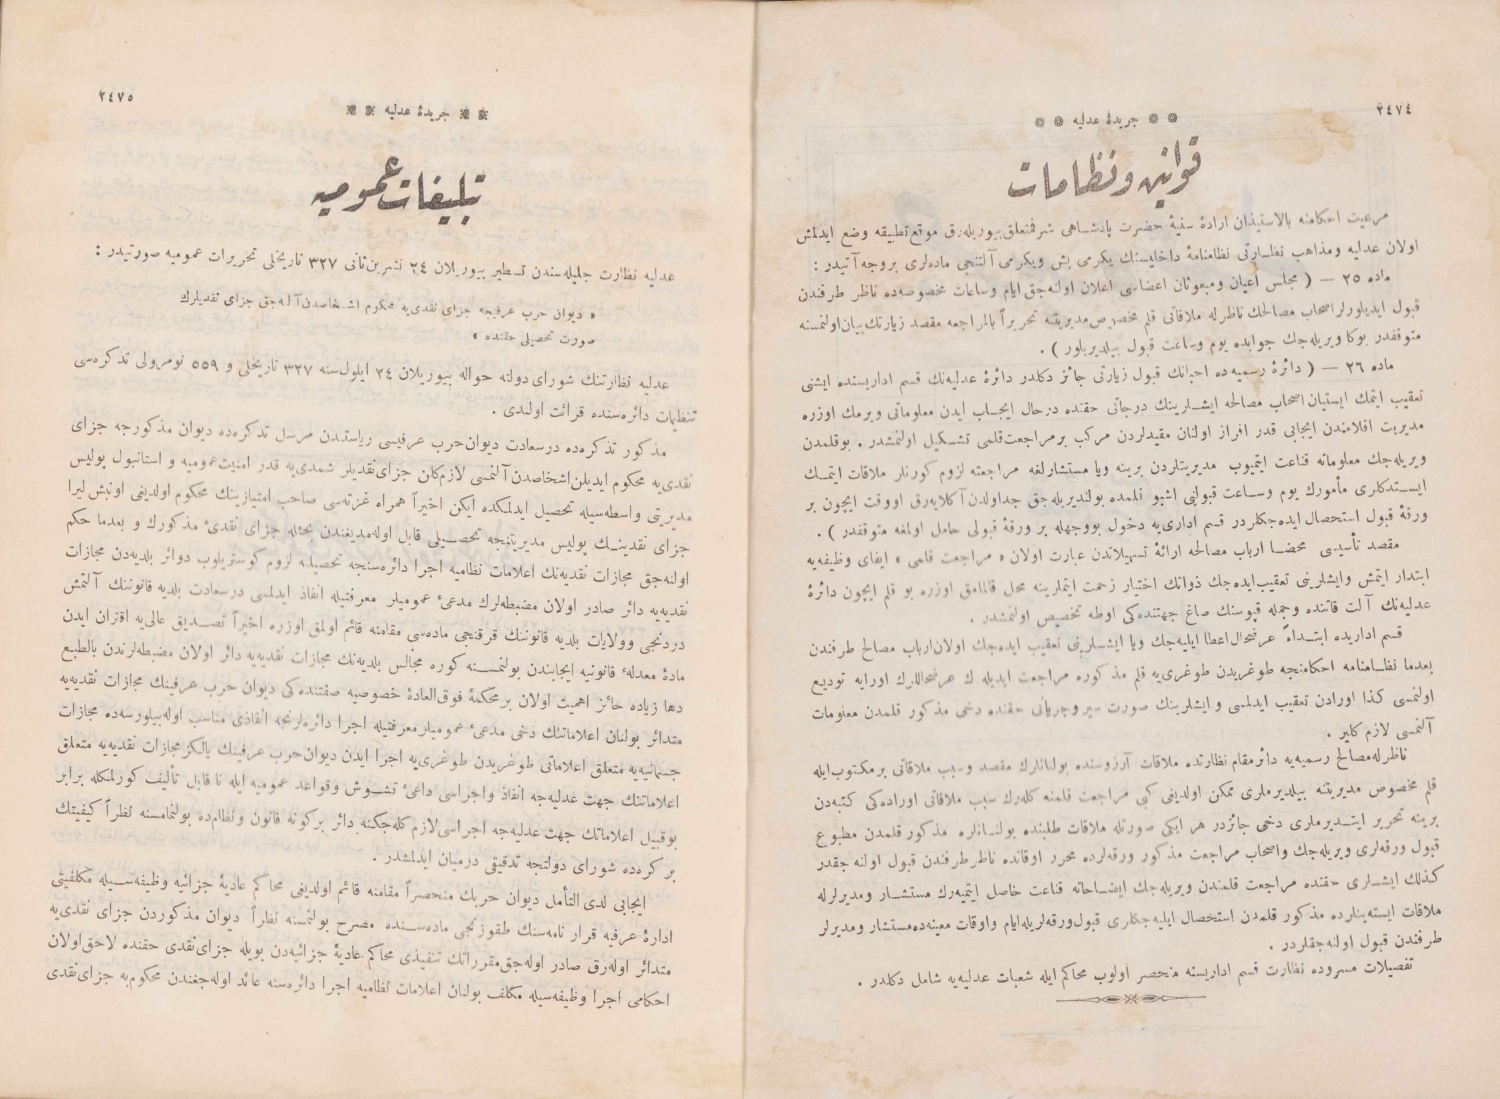 ٢٤٧٤
جريدهٔ عدليه
قوانين ونظامات
مرعيت احكامنه بالاستيذان ارادهٔ سنيهٔ حضرت پادشاهى شرفتعلق بيوريله‌رق موقع تطبيقه وضع ايدلمش
اولان عدليه ومذاهب نظارتى نظامنامهٔ داخليسنك يكرمى بش ويكرمى آلتنجى ماده‌لرى بروجه آتيدر :
ماده ٢٥ — ( مجلس اعيان ومبعوثان اعضاسى اعلان اولنه‌جق ايام وساعات مخصوصه‌ده ناظر طرفندن
قبول ايديلورلر اصحاب مصالحك ناظرله ملاقاتى قلم مخصوص مديريتنه تحريراً بالمراجعه مقصد زيارتك بيان اولنمسنه
متوقفدر بوكا ويريله‌جك جوابده يوم وساعت قبول بيلديريلور ) .
ماده ٢٦ — ( دائرهٔ رسميه‌ده احبانك قبول زيارتى جائز دكلدر دائرهٔ عدليه‌نك قسم اداريسنده ايشنى
تعقيب ايتمك ايستيان اصحاب مصالحه ايشلرينك درجاتى حقنده درحال ايجاب ايدن معلوماتى ويرمك اوزره
مديريت اقلامندن ايجابى قدر افراز اولنان مقيدلردن مركب برمراجعت قلمى تشكيل اولنمشدر . بوقلمدن
ويريله‌جك معلوماته قناعت ايتميوب مديريتلردن برينه ويا مستشارلغه مراجعته لزوم كورنلر ملاقات ايتمك
ايستدكلرى مأمورك يوم وساعت قبولنى اشبو قلمده بولنديريله‌جق جداولدن آكلايه‌رق اووقت ايچون بر
ورقهٔ قبول استحصال ايده‌جكلردر قسم ادارى‌يه دخول بووجهله بر ورقهٔ قبولى حامل اولمغه متوقفدر ) .
مقصد تأسيسى محضا ارباب مصالحه ارائهٔ تسهيلاتدن عبارت اولان « مراجعت قلمى » ايفاى وظيفه‌يه
ابتدار ايتمش وايشلرينى تعقيب ايده‌جك ذواتك اختيار زحمت ايتملرينه محل قالمامق اوزره بو قلم ايچون دائرهٔ
عدليه‌نك آلت قاتنده وجمله قپوسنك صاغ جهتنده‌كى اوطه تخصيص اولنمشدر .
قسم اداريده ابتداءً عرضحال اعطا ايليه‌جك ويا ايشلرينى تعقيب ايده‌جك اولان ارباب مصالح طرفندن
بعدما نظامنامه احكامنجه طوغريدن طوغرى‌يه قلم مذكوره مراجعت ايديله‌رك عرضحاللرك اورايه توديع
اولنمسى كذا اورادن تعقيب ايدلمسى وايشلرينك صورت سير وجريانى حقنده دخى مذكور قلمدن معلومات
آلنمسى لازم كلير .
ناظرله مصالح رسميه‌يه دائر مقام نظارتده ملاقات آرزوسنده بولنانلرك مقصد وسبب ملاقاتى برمكتوب ايله
قلم مخصوص مديريتنه بيلديرملرى ممكن اولديغى كبى مراجعت قلمنه كله‌رك سبب ملاقاتى اوراده‌كى كتبه‌دن
برينه تحرير ايتديرملرى دخى جائزدر هر ايكى صورتله ملاقات طلبنده بولنانلره مذكور قلمدن مطبوع
قبول ورقه‌لرى ويريله‌جك واصحاب مراجعت مذكور ورقه‌لرده محرر اوقاتده ناظر طرفندن قبول اولنه‌جقدر
كذلك ايشلرى حقنده مراجعت قلمندن ويريله‌جك ايضاحاته قناعت حاصل ايتميه‌رك مستشار ومديرلرله
ملاقات ايسته‌ينلرده مذكور قلمدن استحصال ايليه‌جكلرى قبول ورقه‌لريله ايام واوقات معينه‌ده مستشار ومديرلر
طرفندن قبول اولنه‌جقلردر .
تفصيلات مسروده نظارت قسم اداريسنه منحصر اولوب محاكم ايله شعبات عدليه‌يه شامل دكلدر .
٢٤٧٥
جريدهٔ عدليه
تبليغات عموميه
عدليه نظارت جليله‌سندن تسطير بيوريلان ٢٤ تشرين‌ثانى ٣٢٧ تاريخلى تحريرات عموميه صورتيدر :
« ديوان حرب عرفيجه جزاى نقدى‌يه محكوم اشخاصدن آله‌جق جزاى نقديلرك
صورت تحصيلى حقنده »
عدليه نظارتنك شوراى دولته حواله بيوريلان ٢٤ ايلول سنه ٣٢٧ تاريخلى و ٥٥٩ نومرولى تذكره‌سى
تنظيمات دائره‌سنده قرائت اولندى .
مذكور تذكره‌ده درسعادت ديوان حرب عرفيسى رياستدن مرسل تذكره‌ده ديوان مذكورجه جزاى
نقدى‌يه محكوم ايديلن اشخاصدن آلنمسى لازم كلن جزاى نقديلر شمدى‌يه قدر امنيت عموميه و استانبول پوليس
مديريتى واسطه‌سيله تحصيل ايدلمكده ايكن اخيراً همراه غزته‌سى صاحب امتيازينك محكوم اولديغى اون‌بش ليرا
جزاى نقدينك پوليس مديريتنجه تحصيلى قابل اوله‌مديغندن بحثله جزاى نقدىٔ مذكورك و بعدما حكم
اولنه‌جق مجازات نقديه‌نك اعلامات نظاميه اجرا دائره‌سنجه تحصيلنه لزوم كوستريلوب دوائر بلديه‌دن مجازات
نقديه‌يه دائر صادر اولان مضبطه‌لرك مدعىٔ عموميلر معرفتيله انفاذ ايدلمسى درسعادت بلديه قانوننك آلتمش
دردنجى وولايات بلديه قانوننك قرقنجى ماده‌سى مقامنه قائم اولمق اوزره اخيراً تصديق عالى‌يه اقتران ايدن
مادهٔ معدلهٔ قانونيه ايجابندن بولنمسنه كوره مجالس بلديه‌نك مجازات نقديه‌يه دائر اولان مضبطه‌لرندن بالطبع
دها زياده حائز اهميت اولان برمحكمهٔ فوق‌العادهٔ خصوصيه صفتنده‌كى ديوان حرب عرفينك مجازات نقديه‌يه
متدائر بولنان اعلاماتنك دخى مدعىٔ عموميلر معرفتيله اجرا دائره‌لرنجه انفاذى مناسب اوله‌بيلورسه‌ده مجازات
جسمانيه‌يه متعلق اعلاماتى طوغريدن طوغرى‌يه اجرا ايدن ديوان حرب عرفينك يالكز مجازات نقديه‌يه متعلق
اعلاماتنك جهت عدليه‌جه انفاذ واجراسى داعىٔ تشوش وقواعد عموميه ايله نا قابل تأليف كورلمكله برابر
بوقبيل اعلاماتك جهت عدليه‌جه اجراسى لازم كله‌جكنه دائر بركونه قانون ونظام‌ده بولنمامسنه نظراً كيفيتك
بر كره‌ده شوراى دولتجه تدقيقى درميان ايدلمشدر .
ايجابى لدى التأمل ديوان حربك منحصراً مقامنه قائم اولديغى محاكم عاديهٔ جزائيه وظيفه‌سيله مكلفيتى
ادارهٔ عرفيه قرار نامه‌سنك طقوزنجى ماده‌سنده مصرح بولنمسنه نظراً ديوان مذكوردن جزاى نقدى‌يه
متدائر اوله‌رق صادر اوله‌جق مقرراتك تنفيذى محاكم عاديهٔ جزائيه‌دن بويله جزاى نقدى حقنده لاحق اولان
احكامى اجرا وظيفه‌سيله مكلف بولنان اعلامات نظاميه اجرا دائره‌سنه عائد اوله‌جغندن محكوم‌به جزاى نقدى